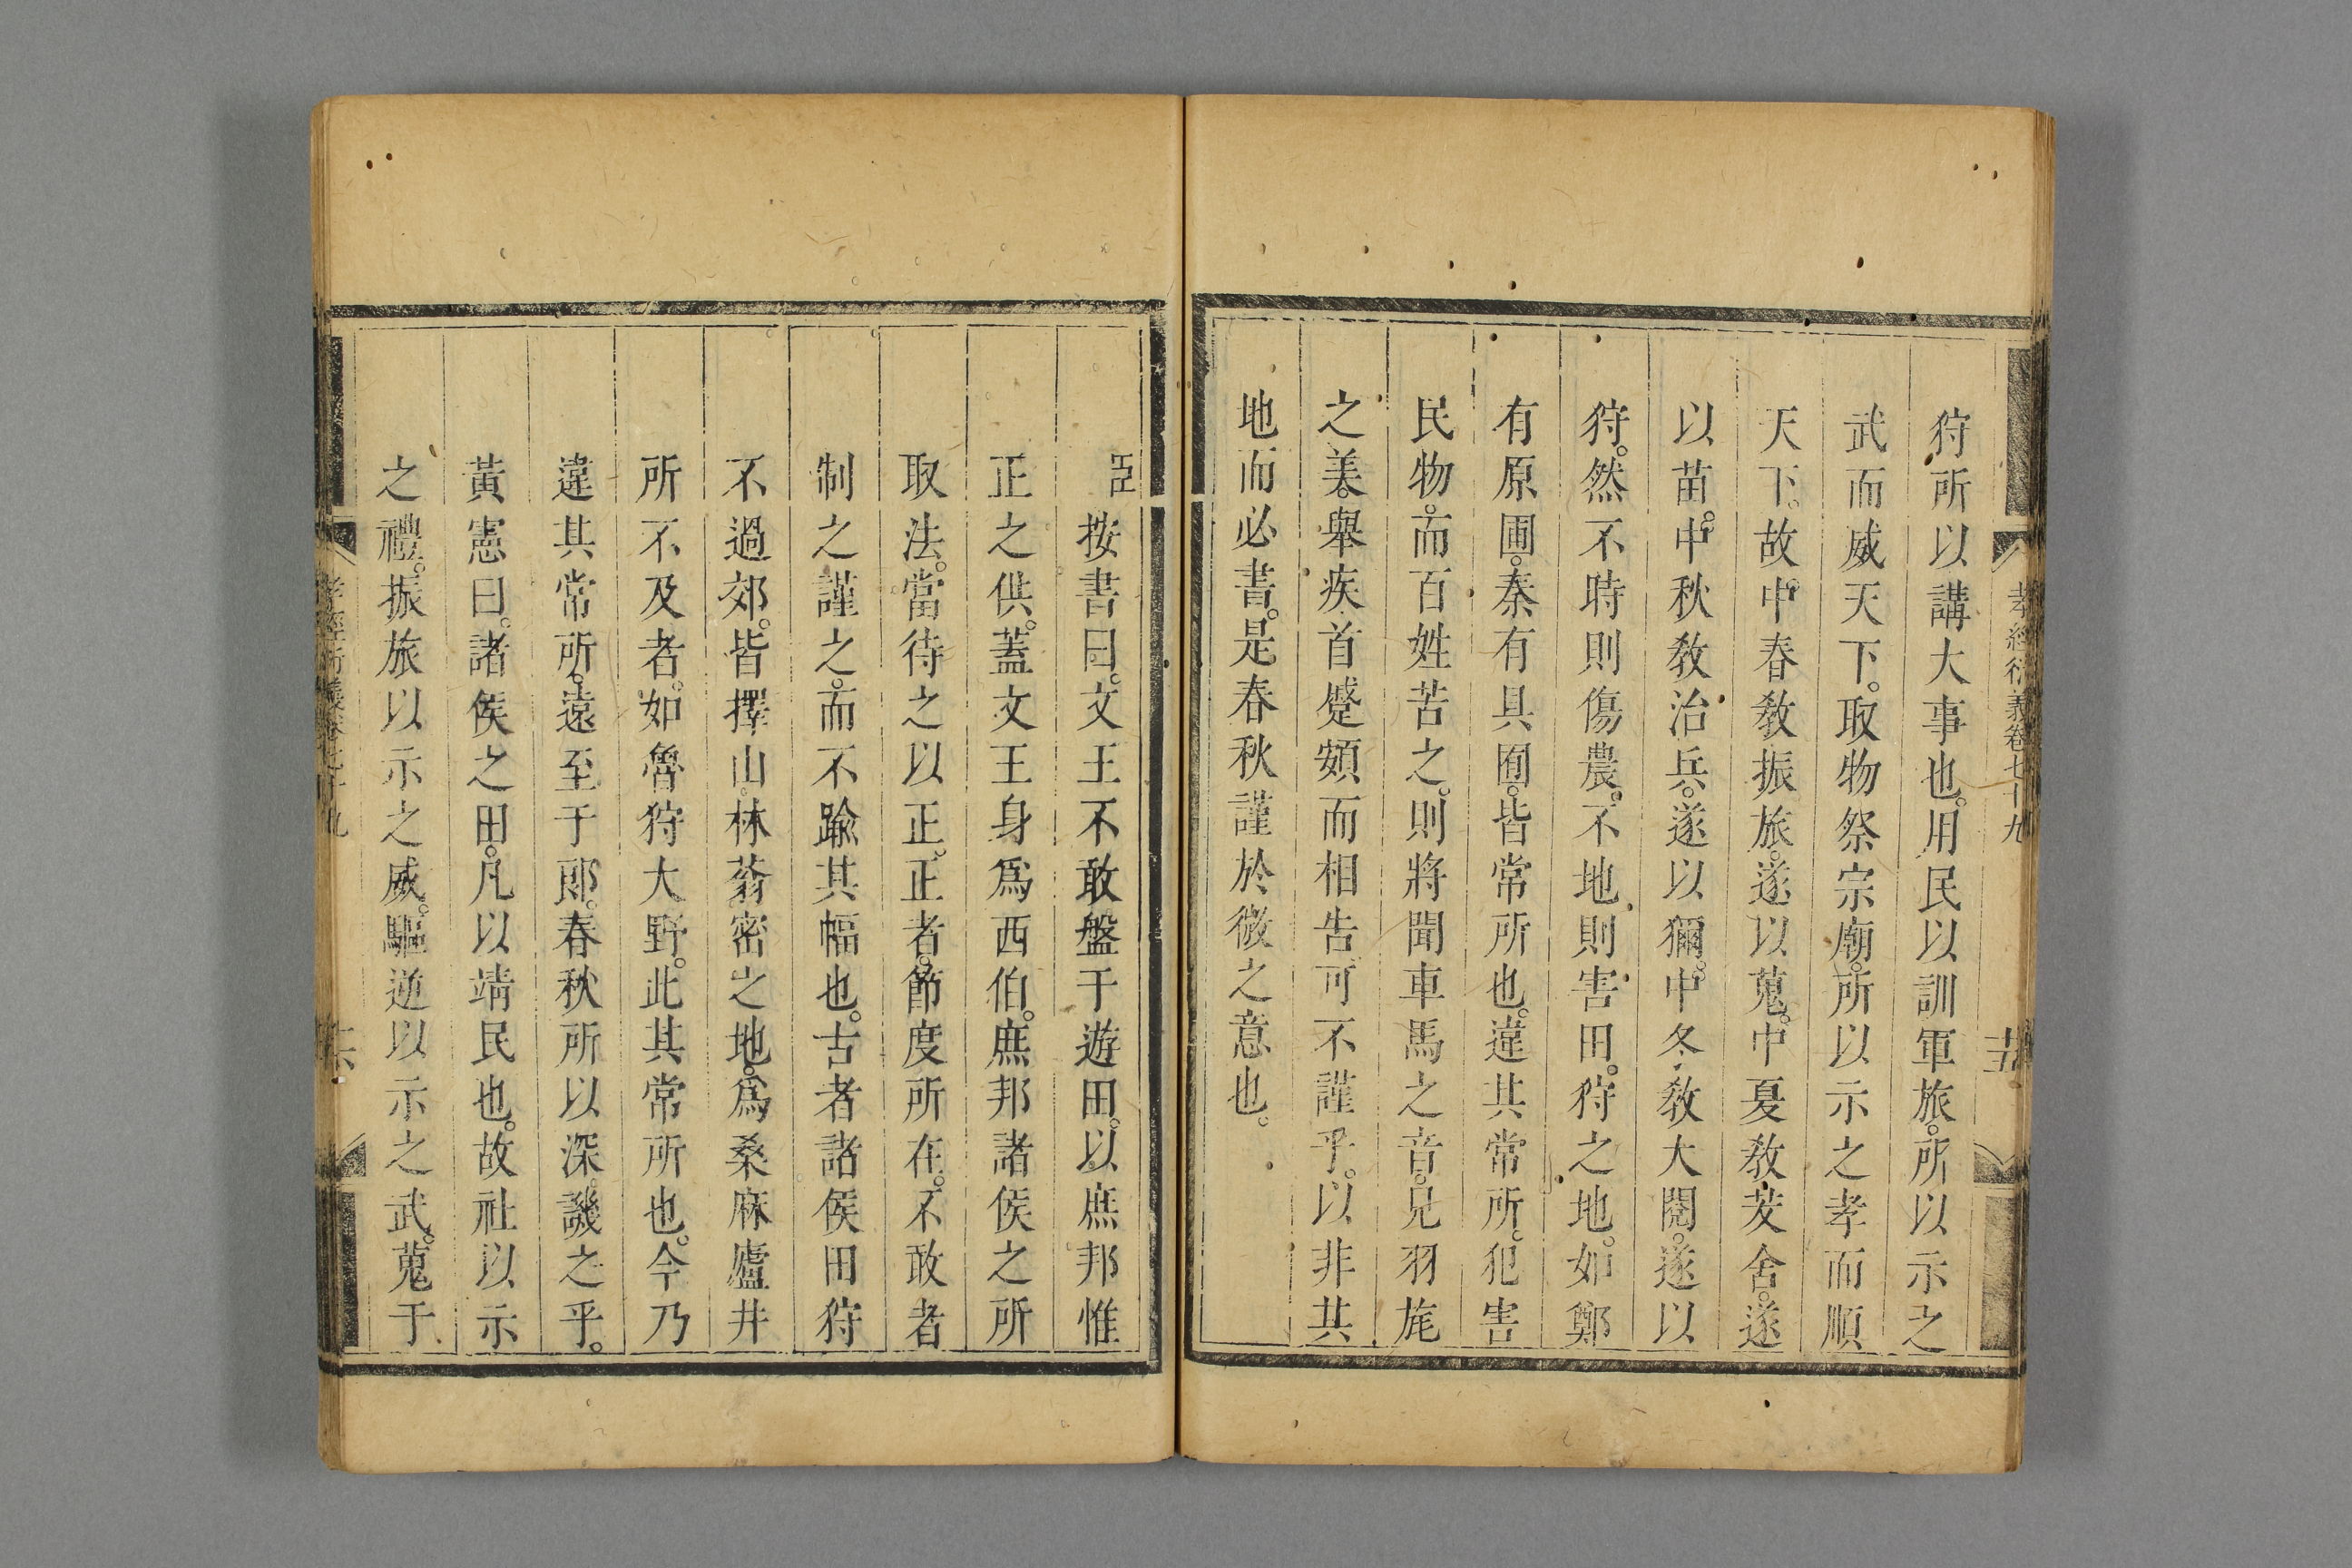 孝經衍義卷七十九
狩所以講大事也。用民以訓軍旅。所以示之
武而威天下。取物祭宗廟。所以示之孝而順
天下。故中春敎振旅。遂以蒐。中夏敎茇舍。遂
以苗。中秋敎治兵。遂以獮。中冬敎大閱。遂以
狩。然不時則傷農。不地則害田。狩之地。如鄭
有原圃。秦有具囿。皆常所也。違其常所。犯害
民物。而百姓苦之。則將聞車馬之音。見羽旄
之美。舉疾首蹙頞而相告。可不謹乎。以非其
地而必書。是春秋謹於微之意也。
臣按書曰。文王不敢盤于遊田。以庶邦惟
正之供。蓋文王身爲西伯。庶邦諸侯之所
取法。當待之以正。正者。節度所在。不敢者
制之謹之。而不踰其幅也。古者諸侯田狩
不過郊。皆擇山林蓊密之地。爲桑麻廬井
所不及者。如魯狩大野。此其常所也。今乃
違其常所。遠至于郞。春秋所以深譏之乎。
黃憲曰。諸侯之田。凡以靖民也。故社以示
之禮。振旅以示之威。驅逆以示之武。蒐于